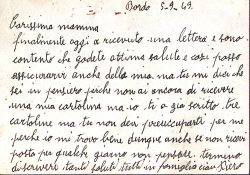 Bordo 5-9-43.
Carissima mamma
finalmente oggi o ricevuto una lettera e sono
contento che godete ottima salute e così posso
assicurarvi anche della mia. ma tu mi dici che
sei in pensiero perché non ai ancora di ricevere
una mia cartolina ma io ti o gia scritto tre
cartoline ma tu non devi preoccuparti per me
perché io mi trovo bene dunque anche se non ricevi
posta per qualche giorno non pensare. termino
di scriverti tanti saluti tutti in famiglia ciau Dero